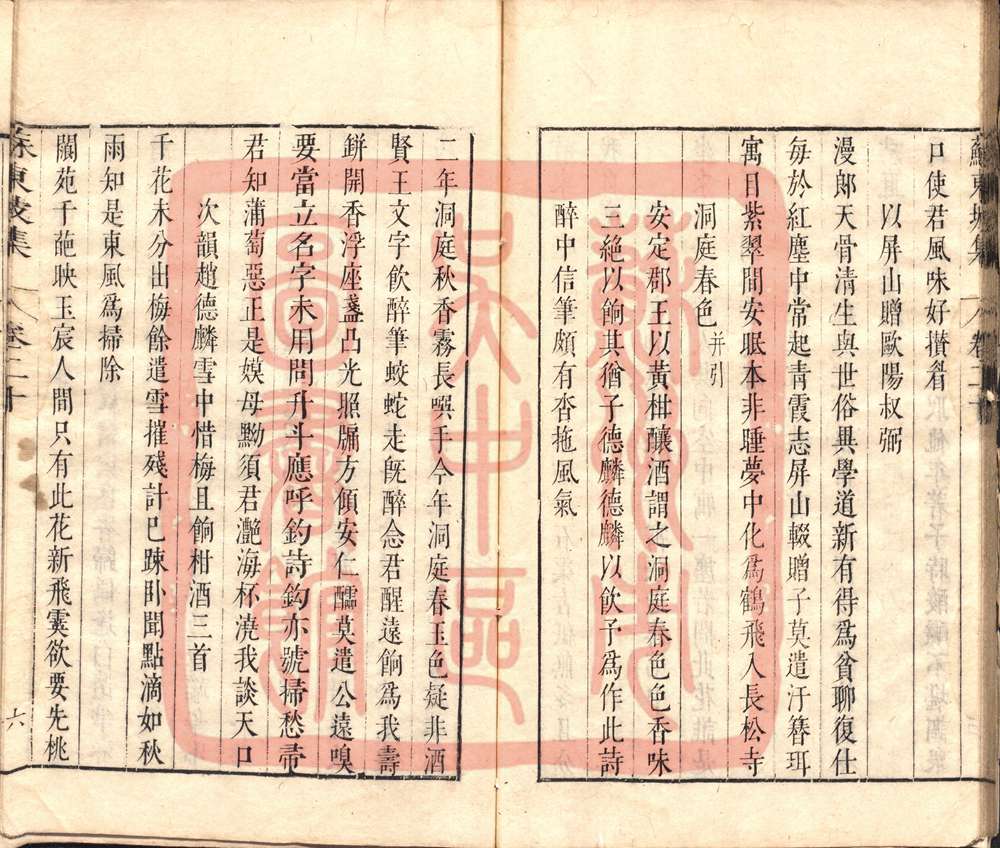 蘇東坡集 卷二十
口使君風味好攅眉
以屏山贈歐陽叔弼
漫郞天骨清生與世俗異學道新有得爲貧聊復仕
每於紅塵中常起青霞志屏山輟贈子莫遣汙簪珥
寓目紫翠間安眠本非睡夢中化爲鶴飛入長松寺
洞庭春色 并引
安定郡王以黃柑釀酒謂之洞庭春色色香味
三絕以餉其猶子德麟德麟以飲予爲作此詩
醉中信筆頗有沓拖風氣
二年洞庭秋香霧長噀手今年洞庭春玉色疑非酒
賢王文字飲醉筆蛟蛇走旣醉念君醒遠餉爲我壽
缾開香浮座盞凸光照牖方傾安仁醽莫遣公遠嗅
要當立名字未用問升斗應呼釣詩鈎亦號掃愁帚
君知蒲萄惡正是嫫母黝須君灔海杯澆我談天口
次韻趙德麟雪中惜梅且餉柑酒三首
千花未分出梅餘遣雪摧殘計已踈卧聞點滴如秋
雨知是東風爲掃除
閬苑千葩映玉宸人間只有此花新飛霙欲要先桃
蘇東坡集 卷二十
六